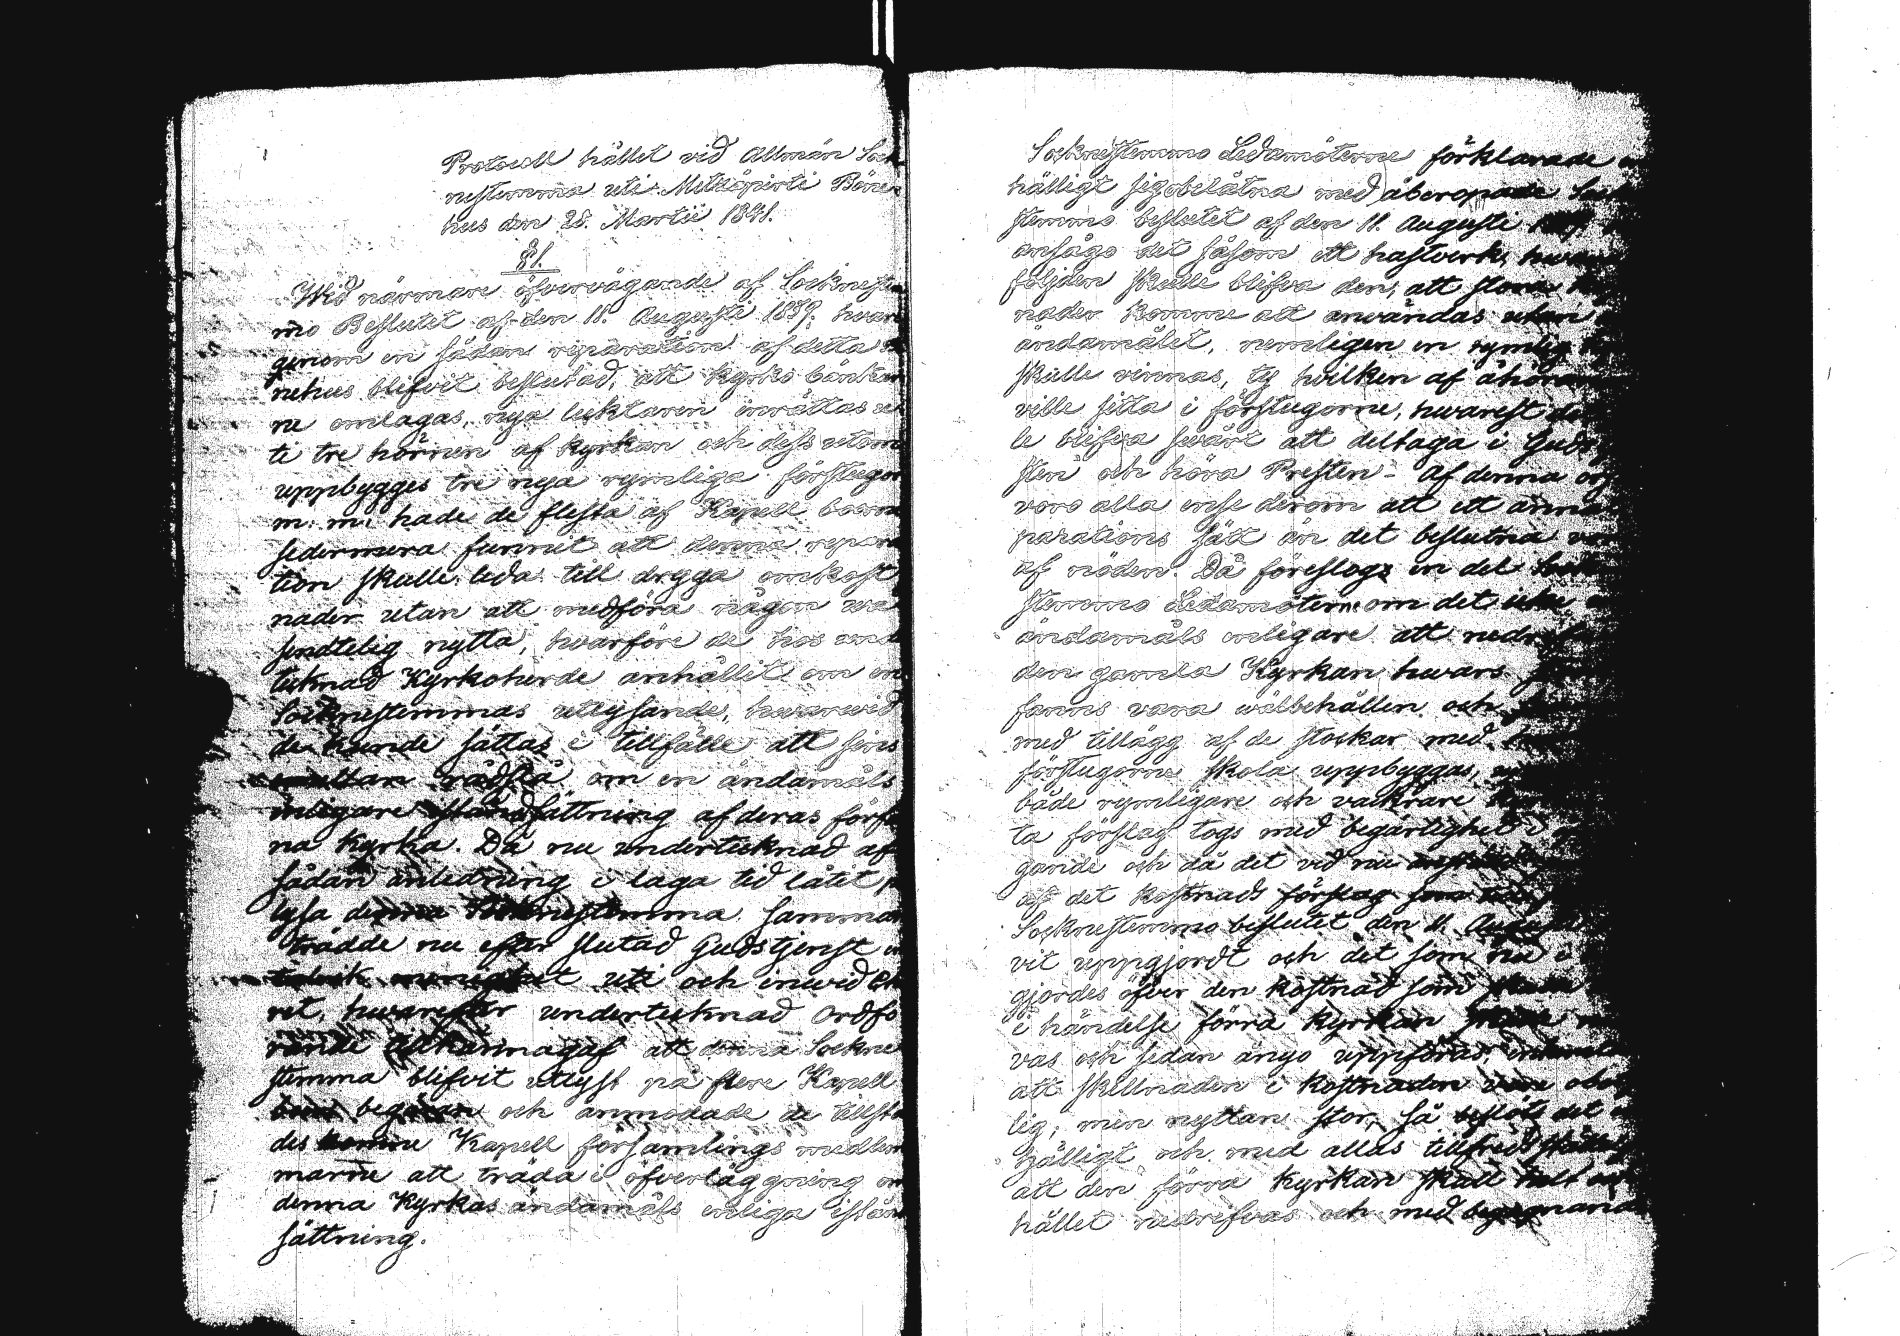 Protocoll hållet vid Allmän Sock
nestemma uti Metsäpirti Böne
hus den 28. Martii 1841.
§1.
Wid närmare öfvervägande af Socknestem
mo Beslutet af den 11. Augusti 1839, hvar
genom en sådan reparation af detta Bö
nehus blifvit beslutad, att kyrko bänkar
ne omlagas, nya lucktaren inrättas u
ti tre hörnen af kyrkan och dess utom
uppbygges tre nya rymliga förstugor
m. m. hade de flesta af Kapell boerne
sedermera funnit att denna repara
tion skulle leda till dryga omkost
nader utan att medföra någon wä
sendtelig nytta, hvarföre de hos unde
tecknad Kyrkoherde anhållit om en
Socknestemmas utlysande, hvarwid
de kunde sättas i tillfälle att sins
emellan rådslå om en ändamåls
enligare istånd sättning af deras förfa
na Kyrka. Då nu undertecknad af
sådan anledning i laga tid låtit p
lysa denna Socknestemma, samman
trädde nu efter slutad Gudstjenst e
talrik menighet uti och inwid Ch
ret, hwarefter undertecknad Ordfö
rande tillkännagaf att denna Sockne
stemma blifvit utlyst på flere Kapell
boers begäran och anmodade de tillstä
des komne Kapell församlings medlem
marne att träda i öfverläggning om
denna Kyrkas ändamåls enliga istånd
sättning.
Socknestemmo Ledamöterne förklarade en
hälligt sig obelåtna med åberopade Sock
stemmo beslutet af den 11. Augusti 1839
ansågo det såsom ett hastverk, hwar
följden skulle blifva den, att stora
nader komme att anwändas utan
ändamålet, nemligen en rymlig
skulle vinnas, ty hvilken af åhörar
ville sitta i förstugorne, hwarest det
le blifva swårt att deltaga i Guds
sten och höra Presten. Af denna ors
voro alla ense derom att ett anna
parations sätt än det beslutna vor
af nöden. Då föreslogs en del
stemmo Ledamöterne om det icke
ändamåls enligare att nedrifva
den gamla Kyrkan hwars
fanns vara wälbehållen och
med tillägg af de stockar med
förstugorne skola uppbyggas,
både rymligare och vackrare
ta förslag togs med begärlighet i
gande och då det vid nu
af det kostnads förslag som
Socknestemmo beslutet den 11. Augusti
vit uppgjordt och det som nu i
gjordes öfver den kostnad som skulle
i händelse förra kyrkan skulle
vas och sedan ånyo uppföras,
att skillnaden i kostnaden wore obe
lig, men nyttan stor, så beslöts det e
hälligt och med allas tillfredsställelse
att den förra kyrkan skall helt och
hållet nedrifvas och med begagnande